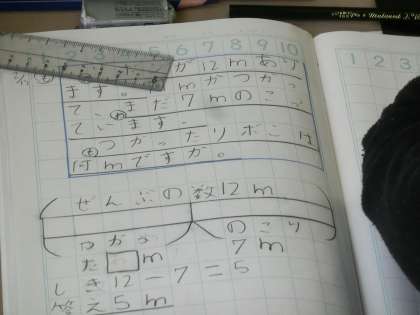 5 6 7 8 9 10
1 2 3
が12mあり
ます。 mがつかっ
て、まだ7mのこっ
ています。
つかったリボンは
何mですか。
ぜんぶの数12m
つかった□m
のこり7m
しき12-7=5
答え5m